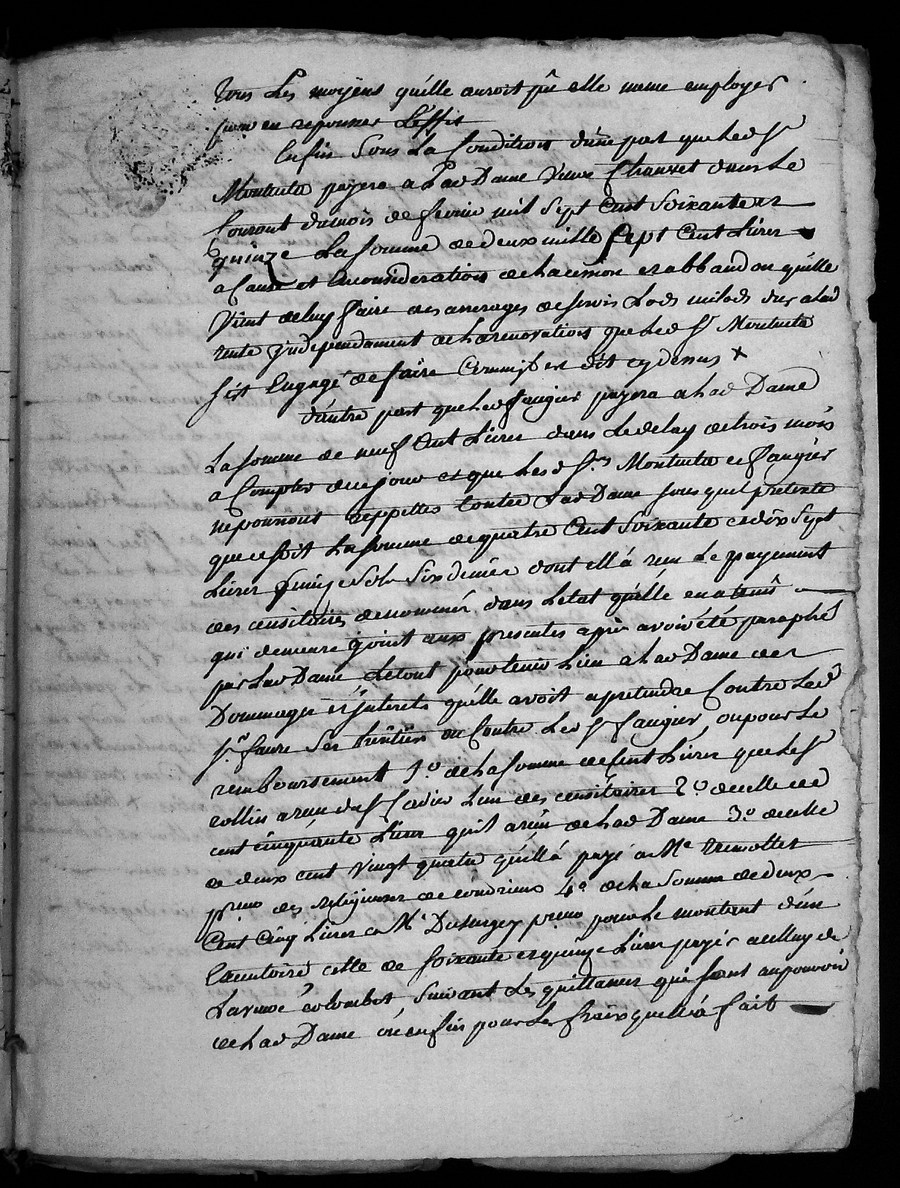 tous Les moyens qu'elle auroit pû elle meme employer
pour en repousser L'effet
Enfin Sous La Condition d'une part que Led Sr
Montulé payera a Lad Dame Veuve Chauvet dans Le
Courant du mois de fevrier mil Sept Cent Soixante et
quinze La Somme de deux mille Sept Cent Livres
a Cause et En considerations de La cession et abbandon qu'elle
Vient de luy faire des arrerages de servis Lods milods dus a lad
rente independament de La renovations que Led Sr Montulé
s'est Engagé de faire Comme il est dit cy dessus +
D'autre part que Led faugier payera a Lad Dame
La Somme de neuf Cent Livres dans Le delay de trois mois
a Compter de ce jour et que Lesd Srs Montulé et faugier
ne pourront repetter Contre Lad Dame sous quel pretexte
que ce soit La Somme de quatre Cent Soixante et dix Sept
Livres quinze Sols Six deniers dont ell'a reçu Le payement
des censitaires denommés dans L'etat qu'elle en a tenû
qui demeure joint aux presentes après avoir été paraphé
par Lad Dame Le tout pour tenir Lieu a Lad Dame des
Dommages et jnterets qu'elle avoit a pretendre Contre Led
Sr faure Ses heritiers ou Contre Led Sr faugier, ou pour Le
remboursement 1o. de La Somme de Cent Livres que Le Sr
collin a reçu du Sr Cadier L'un des censitaires 2o. de celle de
cent cinquante Livres qu'il a reçu de Lad Dame 3o. de celle
de deux cent vingt quatre qu'ell'a payé a Me
des religieuses de Condrieux 4o. de La Somme de deux
Cent Cinq Livres a Me pour Le montant d'un
Executoire celle de Soixante et quinze Livres payés a celluy de
La veuve Colombet, Suivant Les quittances qui sont au pouvoir
de Lad Dame ou enfin pour Les fraix qu'ell'a fait